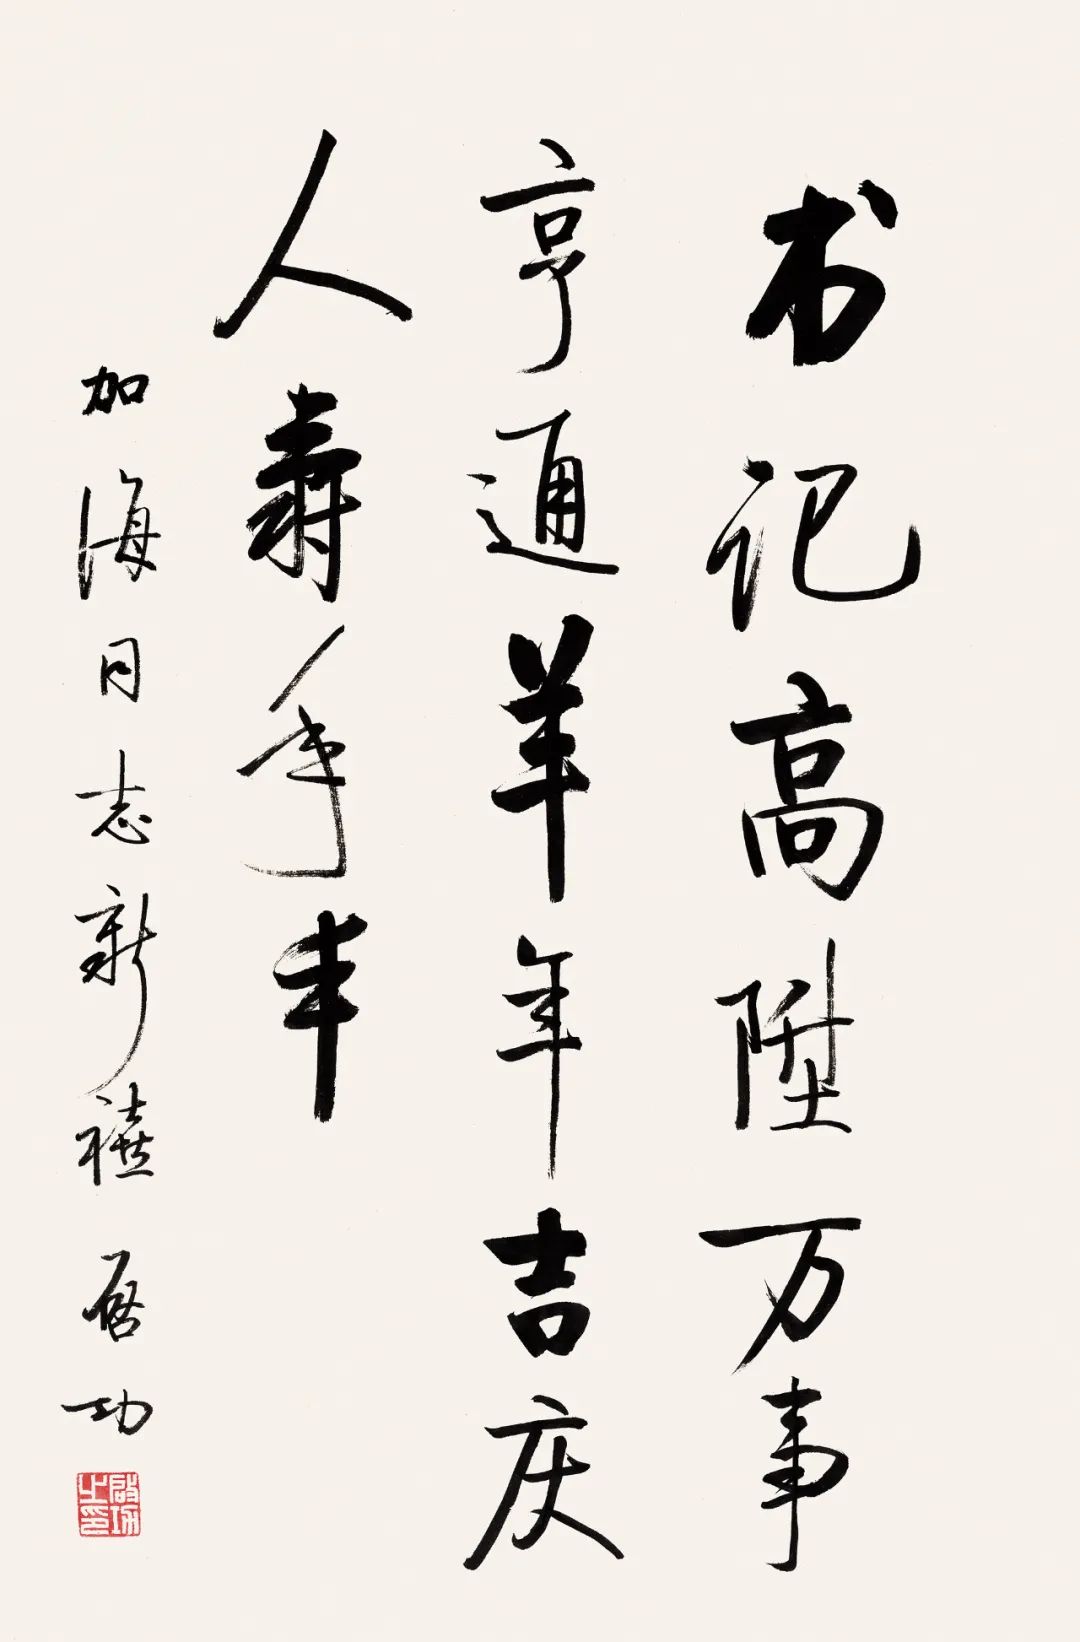 书记高陞万事
亨通羊年吉庆
人寿年丰
加海同志新禧 启功
启功之印